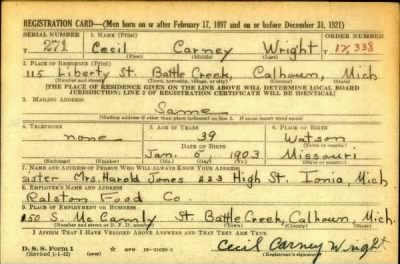 REGISTRATION CARD—(Men born on or after February 17, 1897 and on or before December 31, 1921)
SERIAL NUMBER 1. NAME (Print) ORDER NUMBER
T 271 Cecil Carney Wright T 12,338
(First) (Middle) (Last)
2. PLACE OF RESIDENCE (Print)
115 Liberty St. Battle Creek, Calhoun, Mich
(Number and street) (Town, township, village, or city) (County) (State)
[THE PLACE OF RESIDENCE GIVEN ON THE LINE ABOVE WILL DETERMINE LOCAL BOARD
JURISDICTION; LINE 2 OF REGISTRATION CERTIFICATE WILL BE IDENTICAL]
3. MAILING ADDRESS
Same
[Mailing address if other than place indicated on line 2. If same insert word same]
4. TELEPHONE 5. AGE IN YEARS 6. PLACE OF BIRTH
none 39 Watson
DATE OF BIRTH (Town or county)
Jan. 1903 Missouri
(Exchange) (Number) (Mo.) (Day) (Yr.) (State or country)
7. NAME AND ADDRESS OF PERSON WHO WILL ALWAYS KNOW YOUR ADDRESS
Sister Mrs. Harold Jones 223 High St. Ionia, Mich
8. EMPLOYER'S NAME AND ADDRESS
Ralston Food Co.
9. PLACE OF EMPLOYMENT OR BUSINESS
150 S. McCamly St. Battle Creek, Calhoun, Mich.
(Number and street or R. F. D. number) (Town) (County) (State)
I AFFIRM THAT I HAVE VERIFIED ABOVE ANSWERS AND THAT THEY ARE TRUE.
D. S. S. Form 1
(Revised 1-1-42) (over) GPO
Cecil Carney Wright
(Registrant's signature)